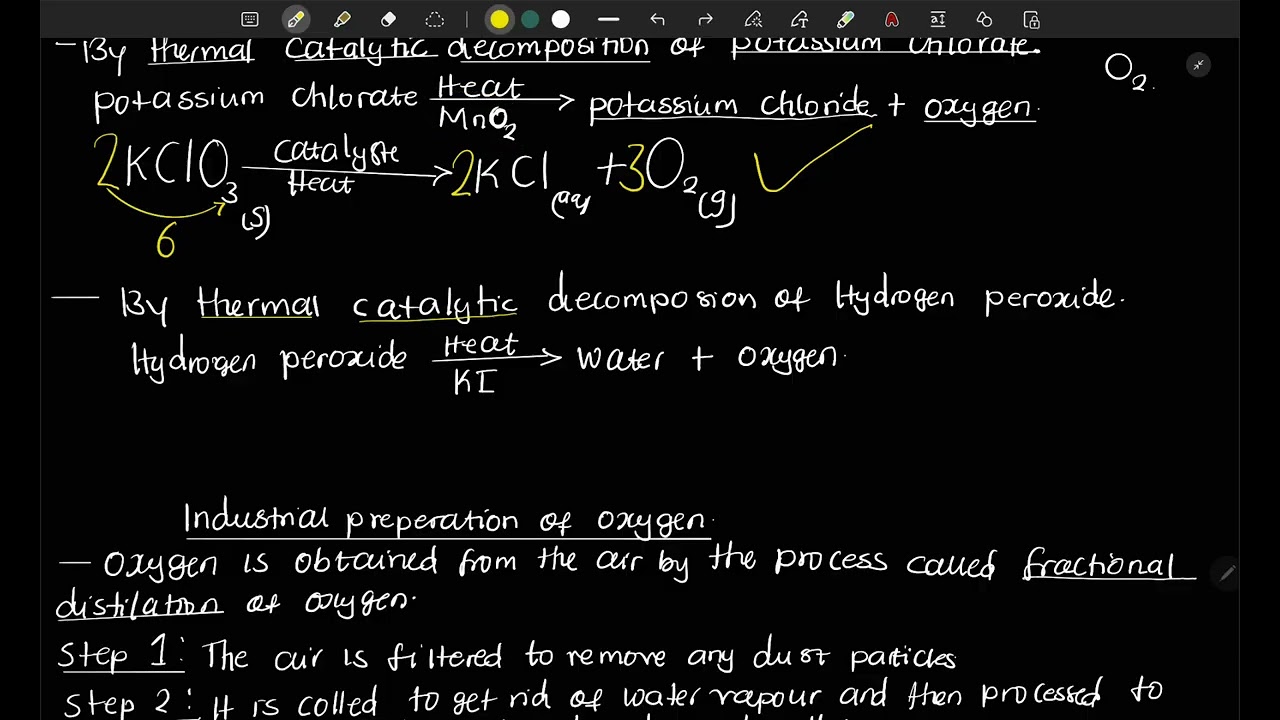 - By thermal catalytic decomposition of potassium chlorate.
O2.
potassium chlorate Heat MnO2 → potassium chloride + oxygen.
2KClO3 (s) catalyste Heat → 2KCl (aq) + 3O2 (g) ✓
6
— By thermal catalytic decomposion of Hydrogen peroxide.
Hydrogen peroxide Heat KI → water + oxygen.
Industrial preperation of oxygen.
— Oxygen is obtained from the air by the process called fractional
distilation of oxygen.
Step 1: The air is filtered to remove any dust particles
Step 2: It is colled to get rid of water vapour and then processed to